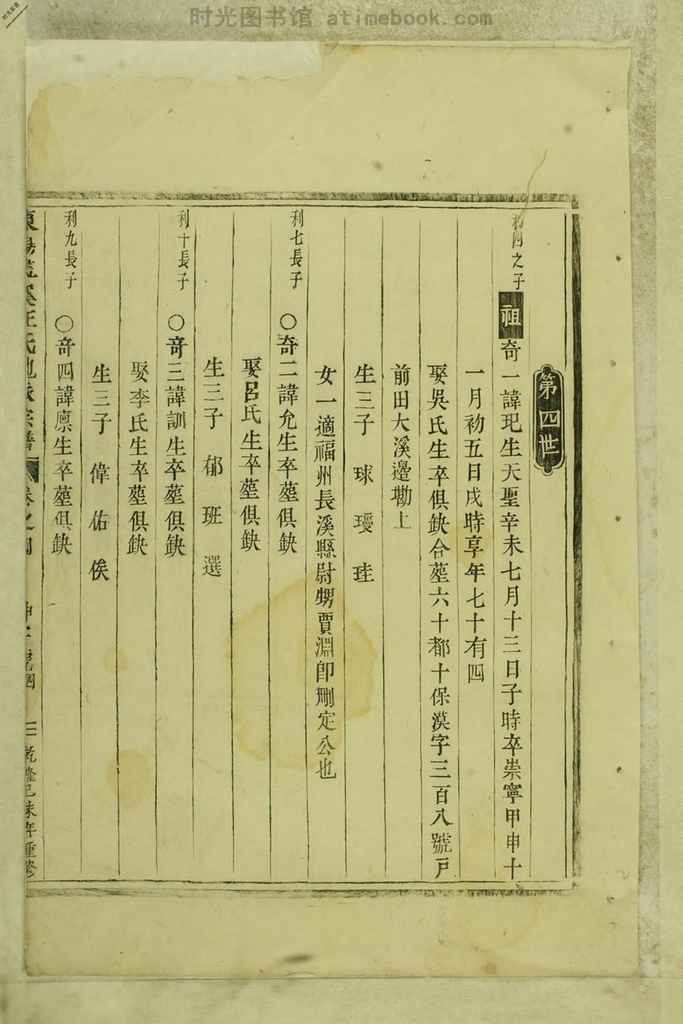 时光图书馆 atimebook.com
第四世
之子
祖奇一諱玘生天聖辛未七月十三日子時卒崇寧甲申十
一月初五日戌時享年七十有四
娶吳氏生卒俱缺合塟六十都十保漠字三百八號戸
前田大溪邊墈上
生三子 球 瑷 珪
女一適福州長溪縣尉甥賈淵卽刪定公也
利七長子 〇奇二諱允生卒塟俱缺
娶呂氏生卒塟俱缺
生三子 郁 班 選
利十長子 〇奇三諱訓生卒塟俱缺
娶李氏生卒塟俱缺
生三子 偉 佑 俟
利九長子 〇奇四諱廪生卒塟俱缺
乾隆己未年重修